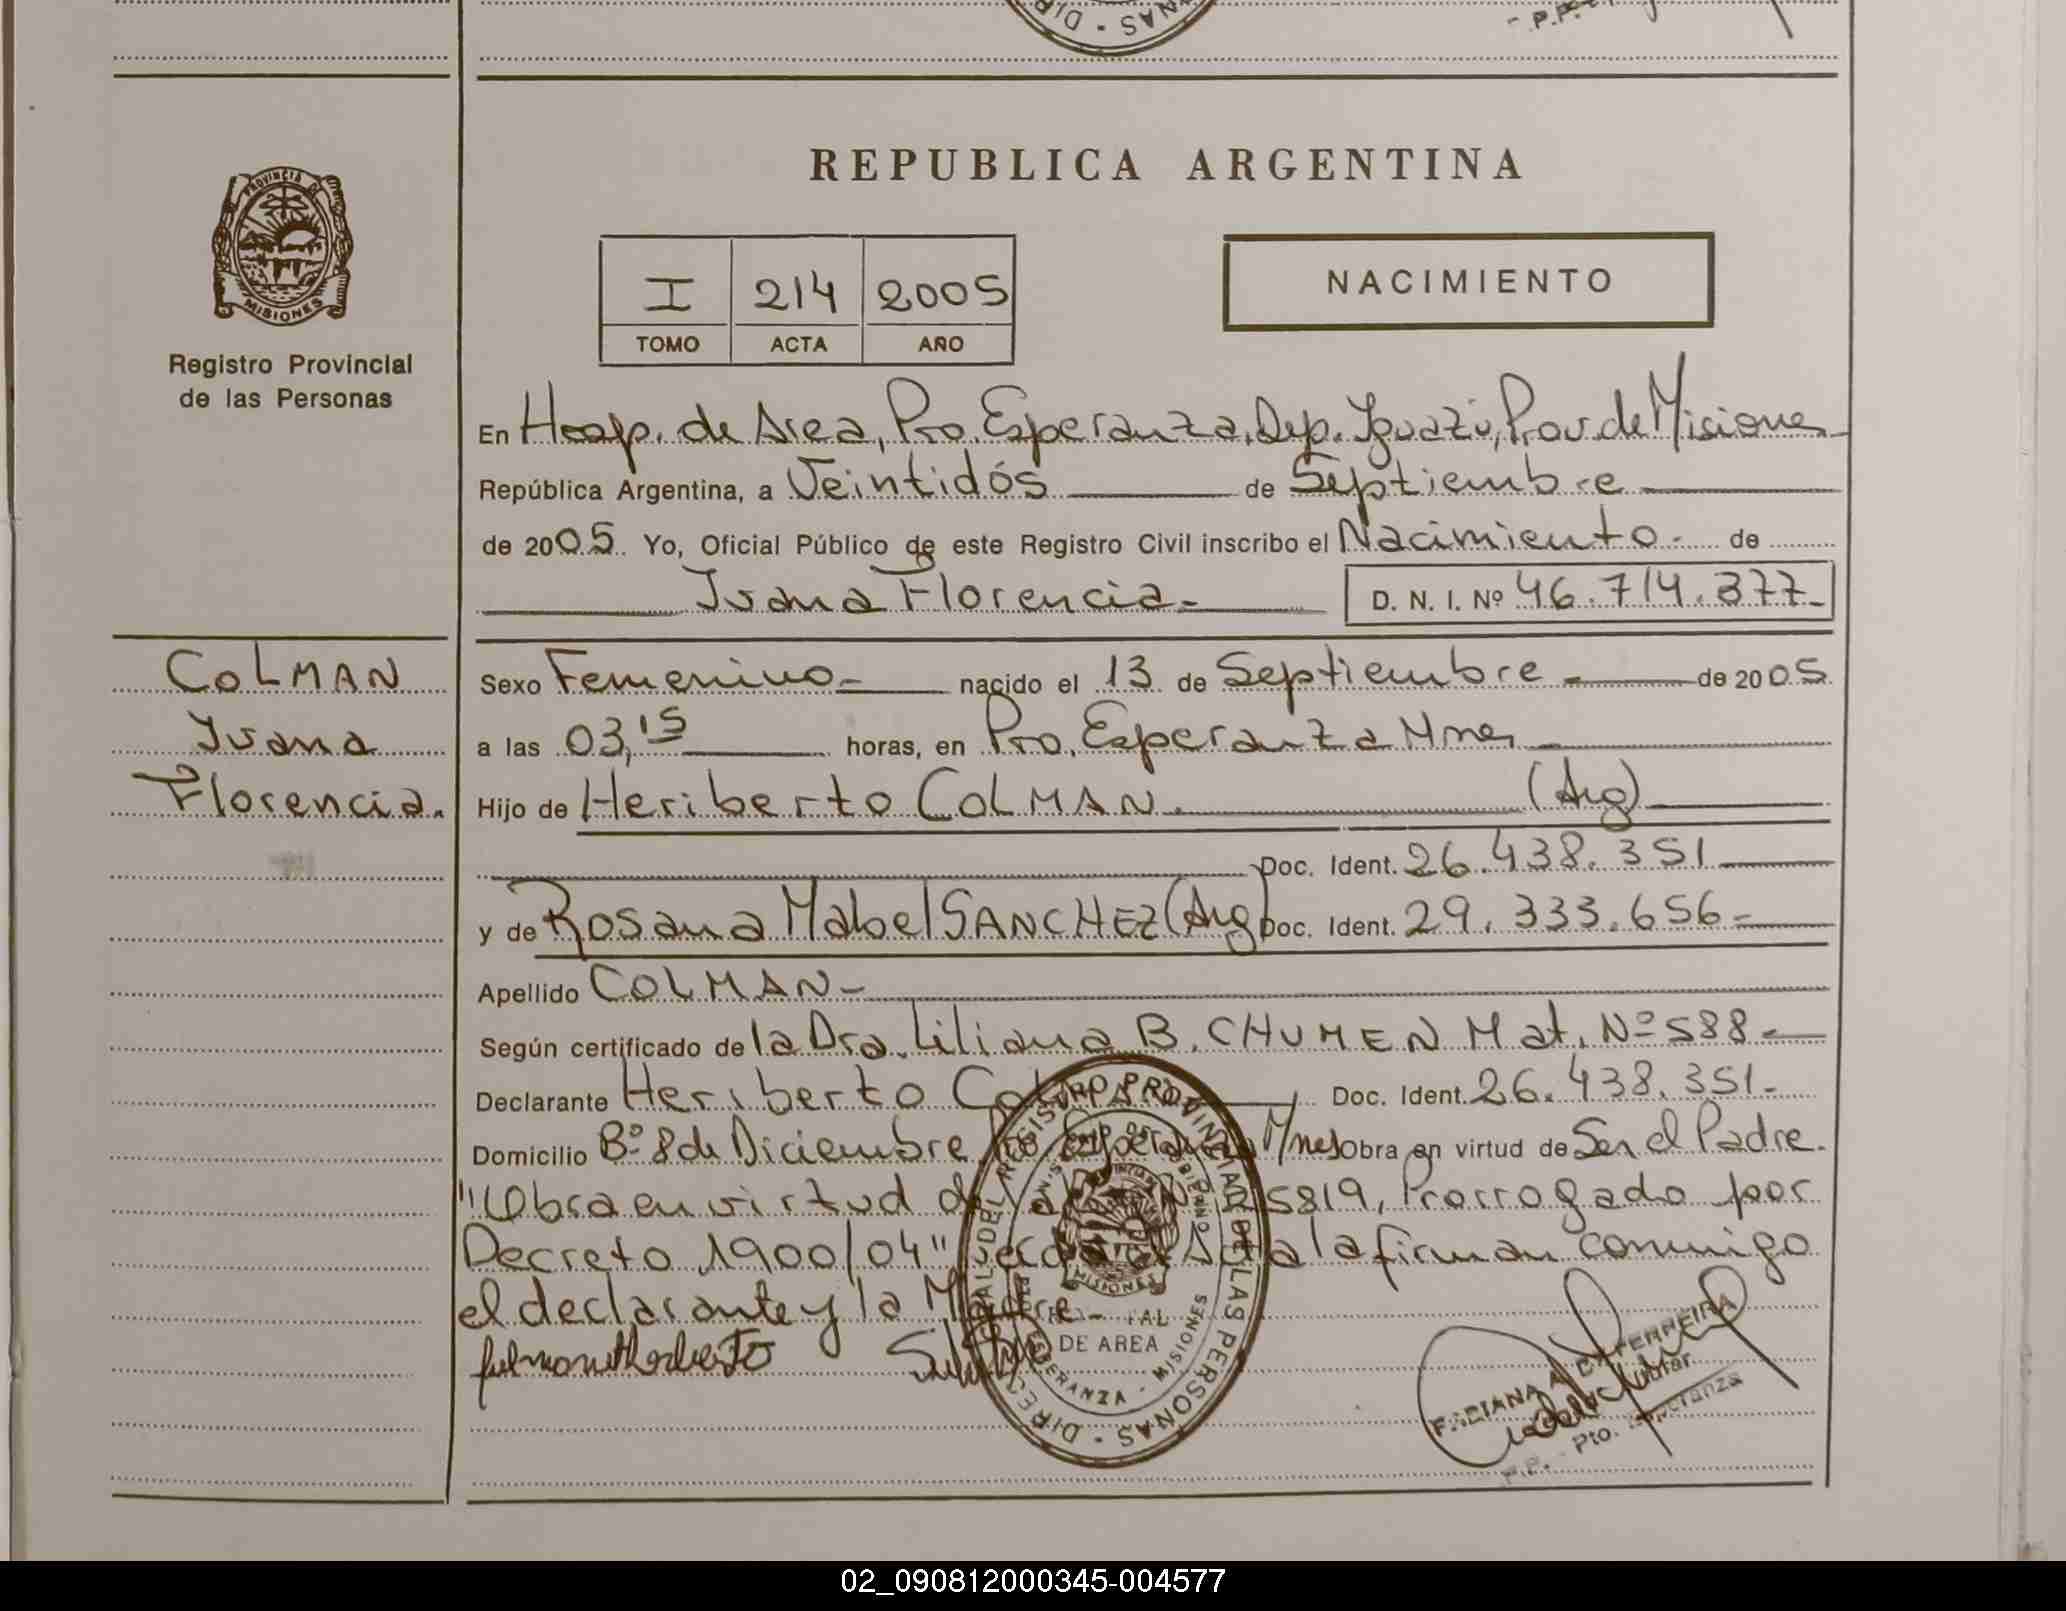 REPUBLICA ARGENTINA
PROVINCIA DE
MISIONES
Registro Provincial
de las Personas
I 214 2005
TOMO ACTA AÑO
NACIMIENTO
En Hosp. de Area, Pto. Esperanza, Dep. Iguazú, Prov. de Misiones
República Argentina, a Veintidós de Septiembre
de 2005. Yo, Oficial Público de este Registro Civil inscribo el Nacimiento - de
Ivana Florencia.- D. N. I. Nº 46.714.377-
COLMAN
Ivana
Florencia.
Sexo Femenino.- nacido el 13 de Septiembre - de 2005
a las 03,15 horas, en Pto. Esperanza Mnes
Hijo de Heriberto COLMAN. (Arg)
Doc. Ident. 26.438.351
y de Rosana Mabel SANCHEZ (Arg) Doc. Ident. 29.333.656-
Apellido COLMAN-
Según certificado de la Dra. Liliana B. CHUMEN Mat. Nº 588-
Declarante Heriberto Doc. Ident. 26.438.351-
Domicilio Bº 8 de Diciembre Pto Esperanza Mnes Obra en virtud de Ser el Padre.
"Obra en virtud de 5819, Prorrogado por
Decreto 1900/04" Acta la firman conmigo
el declarante y la Madre-
REGISTRO PROVINCIAL DE LAS PERSONAS
MISIONES
DE AREA
ESPERANZA - MISIONES
FABIANA A. FERREIRA
Titular
Pto. Esperanza
02_090812000345-004577